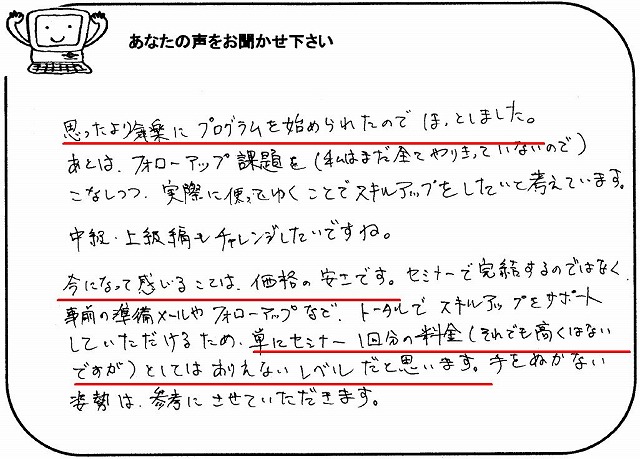 あなたの声をお聞かせ下さい
思ったより気楽にプログラムを始められたのでほっとしました。
あとは、フォローアップ課題を(私はまだ全てやりきっていないので)
こなしつつ、実際に使ってゆくことでスキルアップをしたいと考えています。
中級・上級編もチャレンジしたいですね。
今になって感じることは、価格の安さです。セミナーで完結するのではなく、
事前の準備メールやフォローアップなど、トータルでスキルアップをサポート
していただけるため、単にセミナー1回分の料金(それでも高くはない
ですが)としてはありえないレベルだと思います。手をぬかない
姿勢は、参考にさせていただきます。